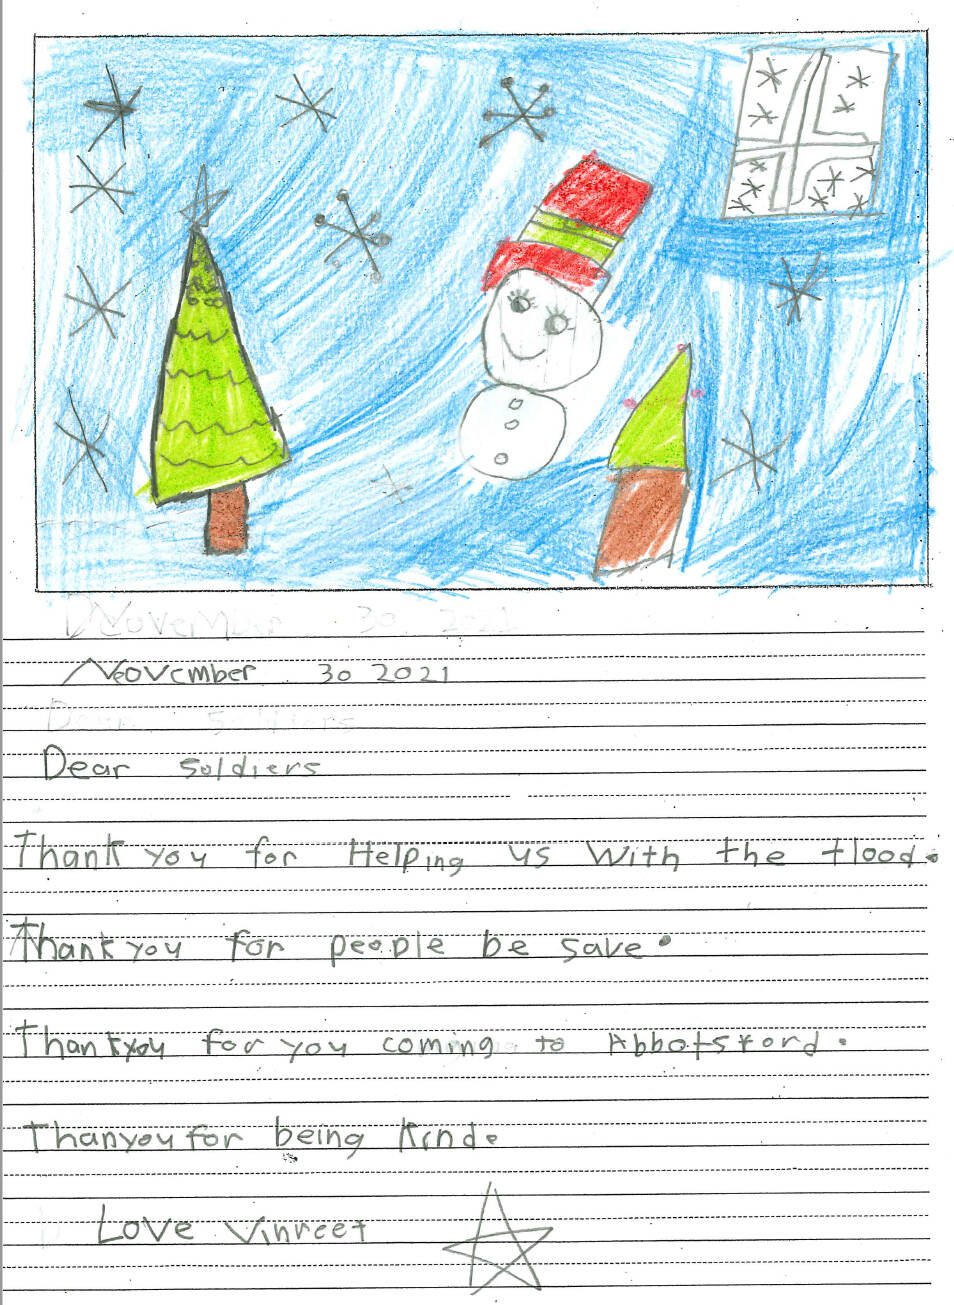 November 30 2021
November 30 2021
Dear Soldiers
Dear Soldiers
Thank you for Helping us With the flood.
Thank you for people be save.
Thankyou for you coming to Abbotsford.
Thanyou for being Kind.
Love Vinreet